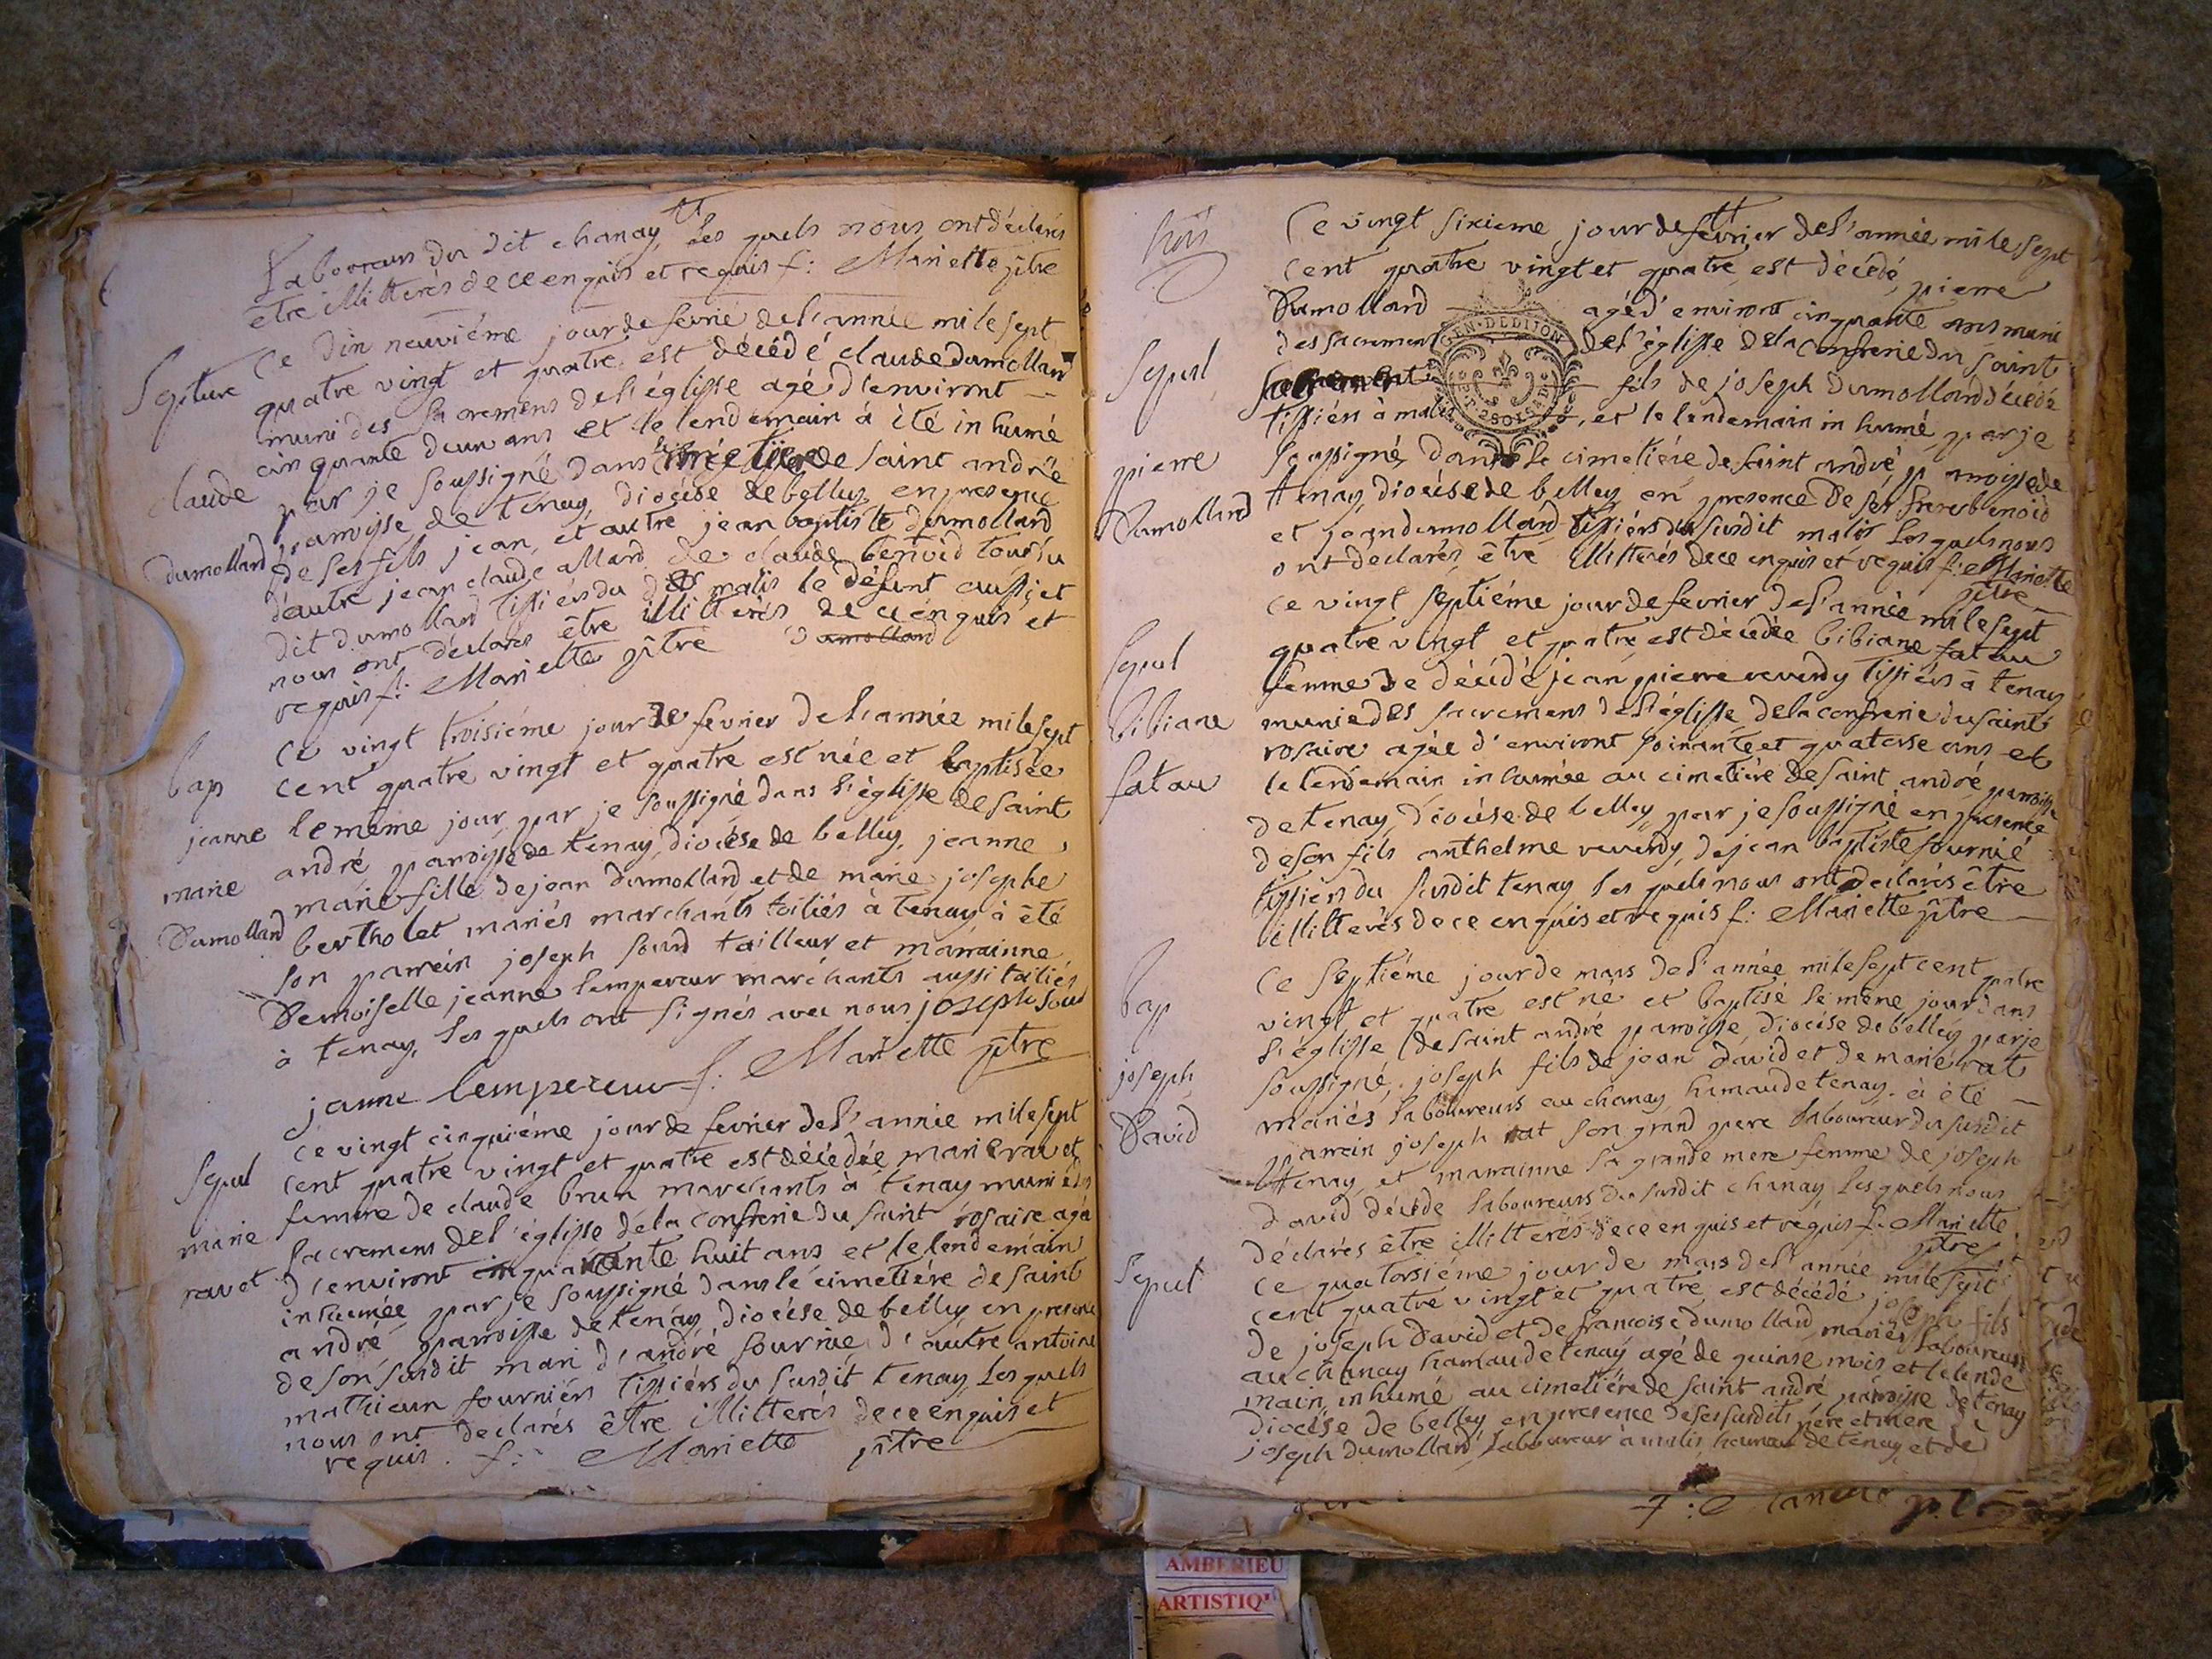 Laboureurs du dit chanay, Les quels nous ont déclarés
être illitterés de ce enquis et requis f: Mariette ptre
Septure
Ce dix neuviéme jour de fevrie de l'année mile sept
quatre vingt et quatre est décédé claude dumollard
muni des sacremens de l'églisse agé d'environt
cinquante deux ans et le lendemain à été inhumé
claude
par je soussigné dans de saint andrée
paroisse de tenay, diocése de belley, en presence
dumollard
de ses fils jean, et autre jean baptiste dumollard
d'autre jean claude allard de claude benoid tous du
dit dumollard tissiérs du malis le défunt aussi, et
nous ont déclarés être illitterés de ce enquis et
requis f: Mariette ptre dumollard
bap
Ce vingt troisiéme jour de fevrier de l'année mile sept
cent quatre vingt et quatre est née et baptisée
jeanne
le même jour par je soussigné dans l'églisse de saint
andré paroisse de tenay, diocése de belley, jeanne
marie
marie fille de jean dumollard et de marie josephe
Dumollard
bertholet mariés marchants toiliés à tenay à été
son parrein joseph sourd tailleur et marrainne
Demoiselle jeanne lempereur marchants aussi toiliés
à tenay, les quels ont signés avec nous joseph sour
janne lempereur f: Mariette ptre
Ce vingt cinquiéme jour de fevrier de l'année mile sept
Sepul
cent quatre vingt et quatre est décédée marie ravet
femme de claude brun marchants à tenay munie des
marie
sacremens de l'églisse de la confrerie du saint rosaire agé
ravet
d'environt quarente huit ans et le lendemain
inhumée par je soussigné dans le cimetiére de saint
andré paroisse de tenay, diocése de belley en presence
de son susdit mari d'andré fournié d'autre antoine
mathieux fourniérs tissiérs du susdit tenay, les quels
nous ont declarés être illitterés de ce enquis et
requis. f: Mariette ptre
trois
Ce vingt sixieme jour de fevrier de l'année mile sept
cent quatre vingt et quatre est décédé, pierre
Dumollard agé d'environt cinquante ans muni
des sacremens de l'églisse de la confrerie du saint
GEN. DE DIJON
Sepul
fils de joseph dumollard décédé
tissiérs à malis, et le lendemain inhumé par je
pierre
soussigné, dans le cimetiére de saint andré paroisse de
Dumollard
tenay, diocése de belley en presence de ses freres benoid
et jean dumollard tissiérs du susdit malis les quels nous
ont declarés être illitterés de ce enquis et requis f: Mariette
ptre
Ce vingt septiéme jour de fevrier de l'année mile sept
Sepul
quatre vingt et quatre est décédée bibiane fatau
femme de décédé jean pierre reverdy tissiérs à tenay
bibiane
munie des sacremens de l'églisse de la confrerie du saint
rosaire agée d'environt soixante et quatorse ans et
fatau
le lendemain inhumée au cimetiére de saint andré paroisse
de tenay diocése de belley par je soussigné en presence
de son fils anthelme reverdy, de jean baptiste fournié
tissiers du susdit tenay les quels nous ont declarés être
illitterés de ce enquis et requis f: Mariette ptre
bap
Ce septiéme jour de mars de l'année mile sept cent quatre
vingt et quatre est né et baptisé le même jour dans
l'églisse de saint andré paroisse, diocése de belley par je
joseph
soussigné, joseph fils de jean david et de marie rat
David
mariés laboureurs au chanay hamau de tenay. à été
parrein joseph rat son grand pere laboureur du susdit
tenay, et marrainne sa grande mere femme de joseph
david décédé laboureurs du susdit chanay les quels nous
déclarés être illitterés de ce enquis et requis f. Mariette
ptre
Sepul
Ce quatorsiéme jour de mars de l'année mile sept
cent quatre vingt et quatre est décédé joseph fils
de joseph David et de francoise dumollard mariés laboureurs
au chanay hamau de tenay agé de quinse mois et le lende
main inhumé au cimetiére de saint andré paroisse de tenay
diocése de belley en presence de ses susdits pére et mere
joseph dumollard laboureur à malis hamau de tenay, et de
AMBERIEU
ARTISTIQU